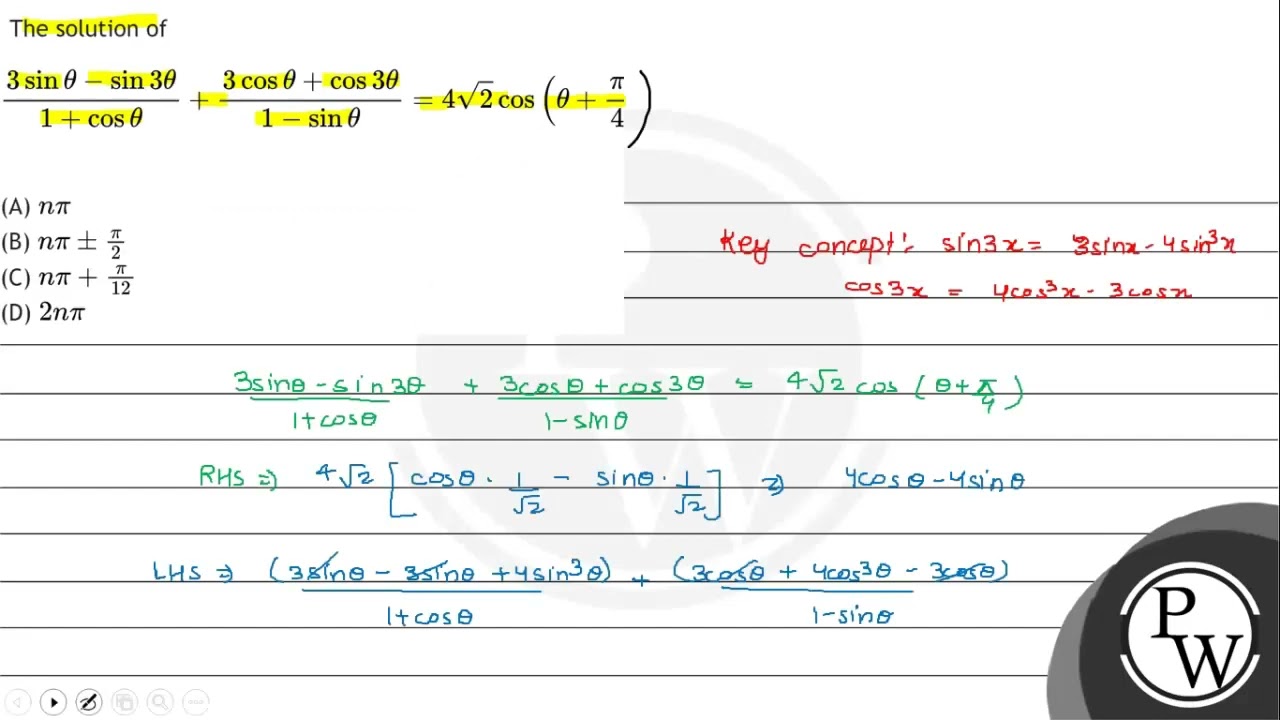 The solution of
(3 sin θ − sin 3θ)/(1 + cos θ) + (3 cos θ + cos 3θ)/(1 − sin θ) = 4√2 cos (θ + π/4)
(A) nπ
(B) nπ ± π/2
(C) nπ + π/12
(D) 2nπ
Key concept: sin3x = 3sinx - 4sin³x
cos3x = 4cos³x - 3cosx
(3sinθ - sin3θ)/(1+cosθ) + (3cosθ + cos3θ)/(1-sinθ) = 4√2 cos (θ + π/4)
RHS ⇒ 4√2 [cosθ · 1/√2 - sinθ · 1/√2] ⇒ 4cosθ - 4sinθ
LHS ⇒ (3sinθ - 3sinθ + 4sin³θ)/(1+cosθ) + (3cosθ + 4cos³θ - 3cosθ)/(1-sinθ)
P
W